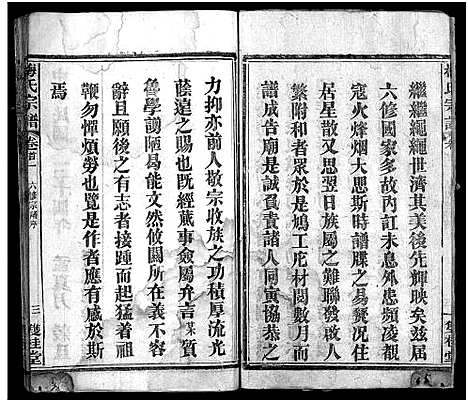 繼繼繩繩世濟其美後先輝映矣茲屆
六修國家多故內訌未息外患頻凌覩
寇火烽烟大思斯時譜牒之易燹況住
居星散又思日族屬之難聯日久人
繁附和者眾於是鳩工庀材閱數月而
告厥成是誠負責諸人同寅協恭之
力抑亦前人敬宗收族之功積厚流光
蔭遠之賜也旣經蕆事僉屬弁言某質
魯學謭陋曷能文然攸關所在義不容
辭且願後之有志者接踵而起以
鞭勿憚煩勞也覽是作者應有感於斯
焉
梅氏宗譜
卷首一
六修宗譜序
三
雙桂堂